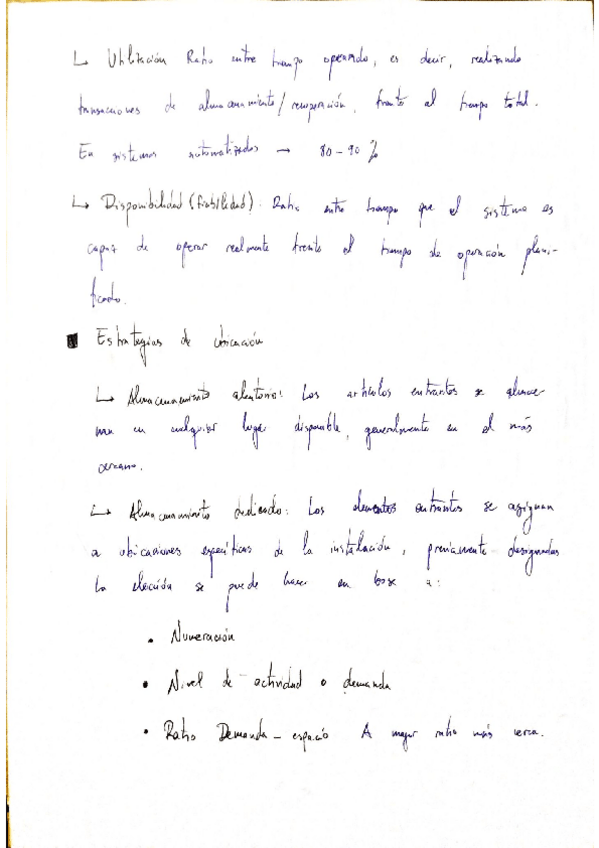 ↳ Utilización Ratio entre tiempo operando, es decir, realizando
transacciones de almacenamiento/recuperación, frente al tiempo total.
En sistemas automatizados → 80-90 %
↳ Disponibilidad (fiabilidad): Ratio entre tiempo que el sistema es
capaz de operar realmente frente el tiempo de operación plani-
ficado.
Estrategias de ubicación
↳ Almacenamiento aleatorio: Los artículos entrantes se almace-
nan en cualquier lugar disponible, generalmente en el más
cercano.
↳ Almacenamiento dedicado: Los elementos entrantes se asignan
a ubicaciones específicas de la instalación, previamente designadas
La elección se puede hacer en base a:
• Numeración
• Nivel de actividad o demanda
• Ratio Demanda - espacio A mayor ratio más cerca.